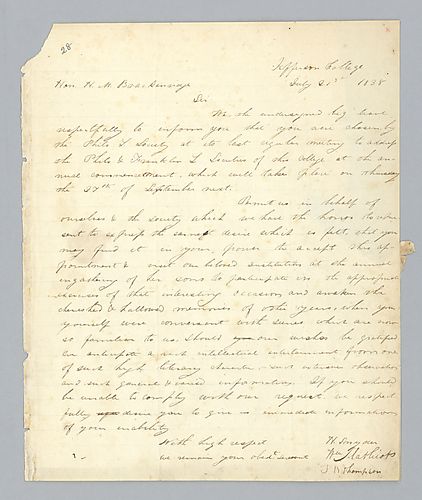 28
Jefferson College
July 21st 1838
Hon. H. M. Brackenridge
Sir
We the undersigned beg leave
respectfully to inform you that you were chosen by
the Philo L Society at its last regular meeting to address
the Philo & Franklin L Societies of this College at the an-
nual commencement, which will take place on Thursday
the 27th of September next.
Permit us in behalf of
ourselves & the society which we have the honor to repre-
sent to express the earnest desire which is felt, that you
may find it in your power to accept this ap-
pointment & visit our beloved institution at the annual
ingathering of her sons to participate in the appropriate
exercises of that interesting occasion and awaken the
cherished & hallowed memories of other years, when you
yourself were conversant with scenes which are now
so familiar to us. Should our wishes be gratified
we anticipate a rich intellectual entertainment from one
of such high literary character, such extensive observation
and such general & varied information. If you should
be unable to comply with our request, we respect-
fully desire you to give us immediate information
of your inability
With high respect
we remain your obdt servants
H. Snyder
Wm Mathiot
J B Thompson